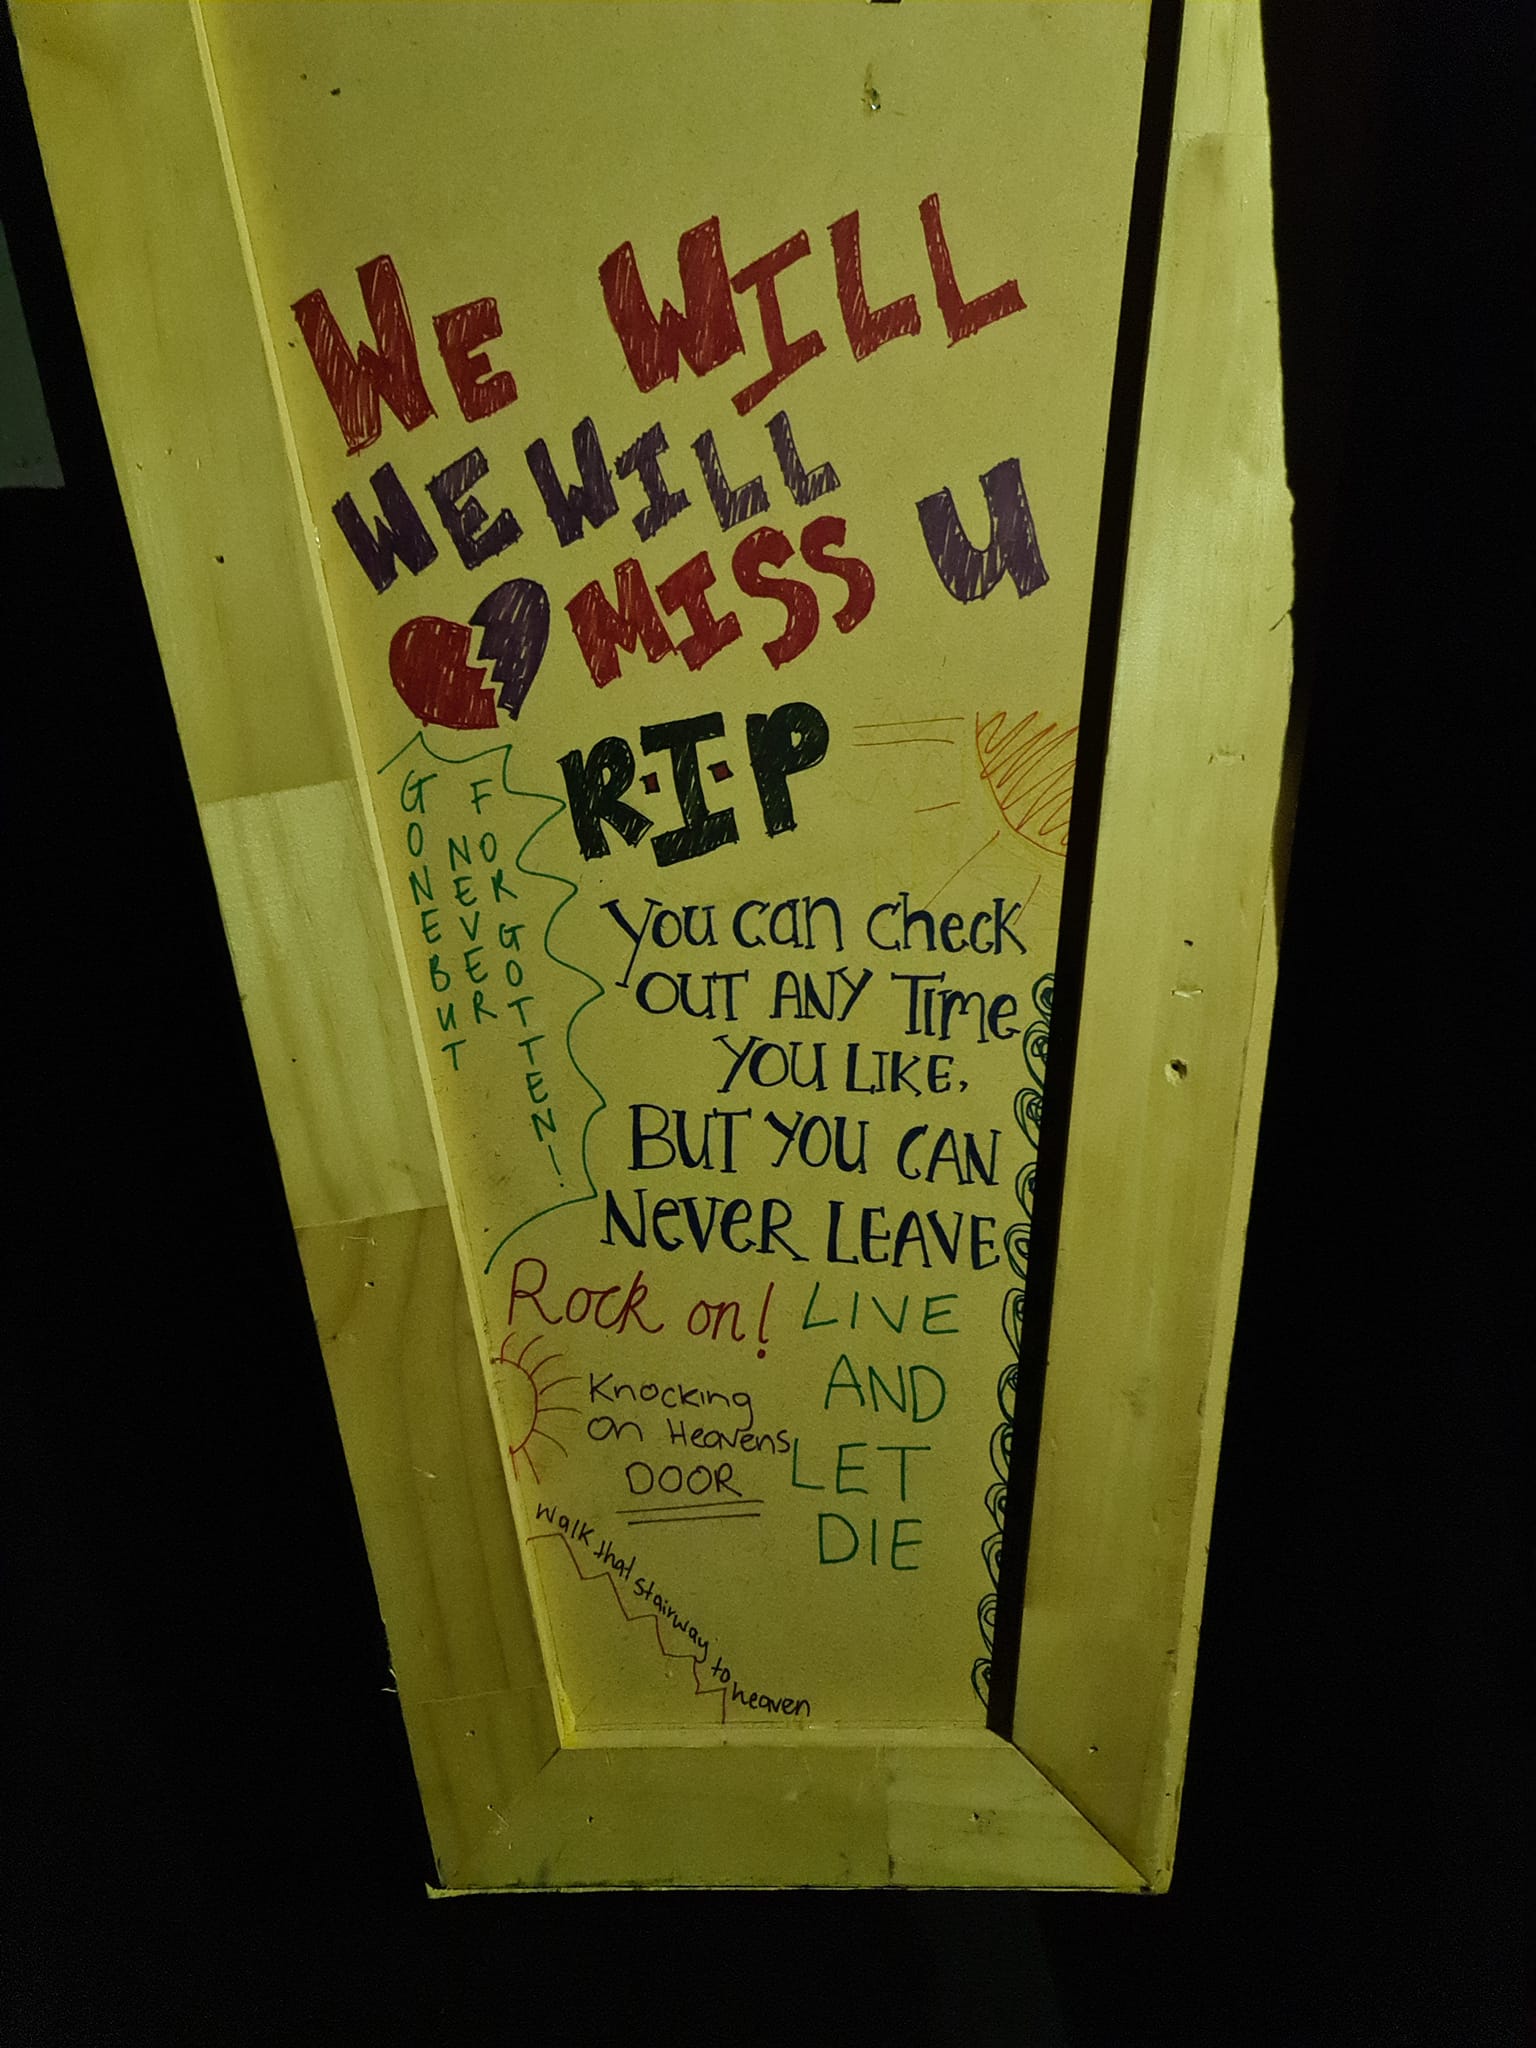 WE WILL
WE WILL
MISS U
R·I·P
GONE BUT
NEVER
FORGOTTEN!
You can check
OUT ANY Time
YOU LIKE,
BUT YOU CAN
NeveR LEAVE
Rock on!
LIVE
AND
LET
DIE
Knocking
on Heavens
DOOR
Walk that stairway to heaven